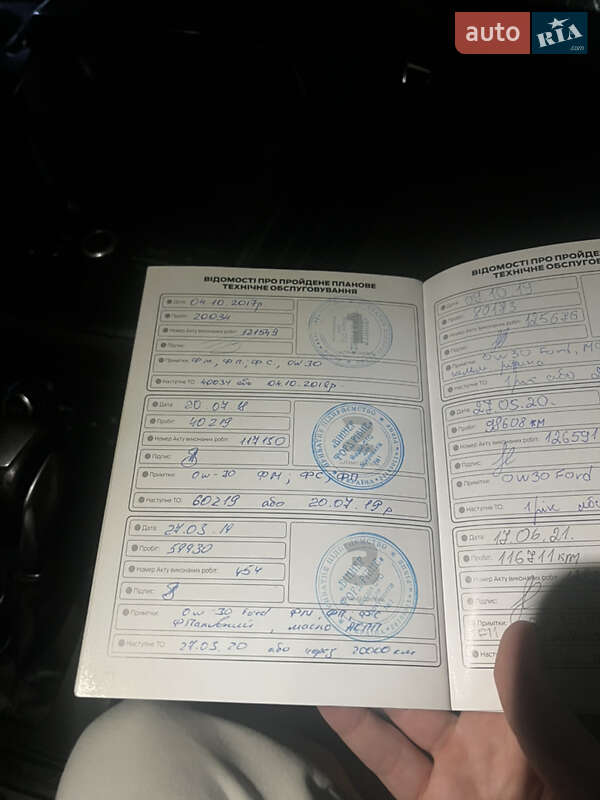 auto RIA .com
ВІДОМОСТІ ПРО ПРОЙДЕНЕ ПЛАНОВЕ
ТЕХНІЧНЕ ОБСЛУГОВУВАННЯ
Дата: 04.10.2017р
Пробіг: 20034
Номер Акту виконаних робіт: 121549
Підпис:
Примітки: ФМ, ФП, ФС, 0w30
Наступне ТО: 40034 або 04.10.2018р.
Дата: 20.07.18
Пробіг: 40219
Номер Акту виконаних робіт: 117150
Підпис:
Примітки: 0w-30 ФМ; ФС; ФП
Наступне ТО: 60219 або 20.07.19р
Дата: 27.03.19
Пробіг: 59930
Номер Акту виконаних робіт: 454
Підпис:
Примітки: 0w-30 Ford ФМ, ФП, ФС
, масло АКПП
Наступне ТО: 27.03.20 або через 20000 км
ВІДОМОСТІ ПРО ПРОЙДЕ
ТЕХНІЧНЕ ОБСЛУГОВУ
Дата: 02.10.19
Пробіг:
Номер Акту виконаних робіт: 125676
Підпис:
Примітки: 0w30 Ford,
Наступне ТО: 1 рік або
Дата: 27.05.20.
Пробіг: 98608 км
Номер Акту виконаних робіт: 126591
Підпис:
Примітки: 0w30 Ford
Наступне ТО: 1 рік або
Дата: 17.06.21.
Пробіг: 116711 км
Номер Акту виконаних робіт:
Підпис:
Примітки:
Наступне ТО: